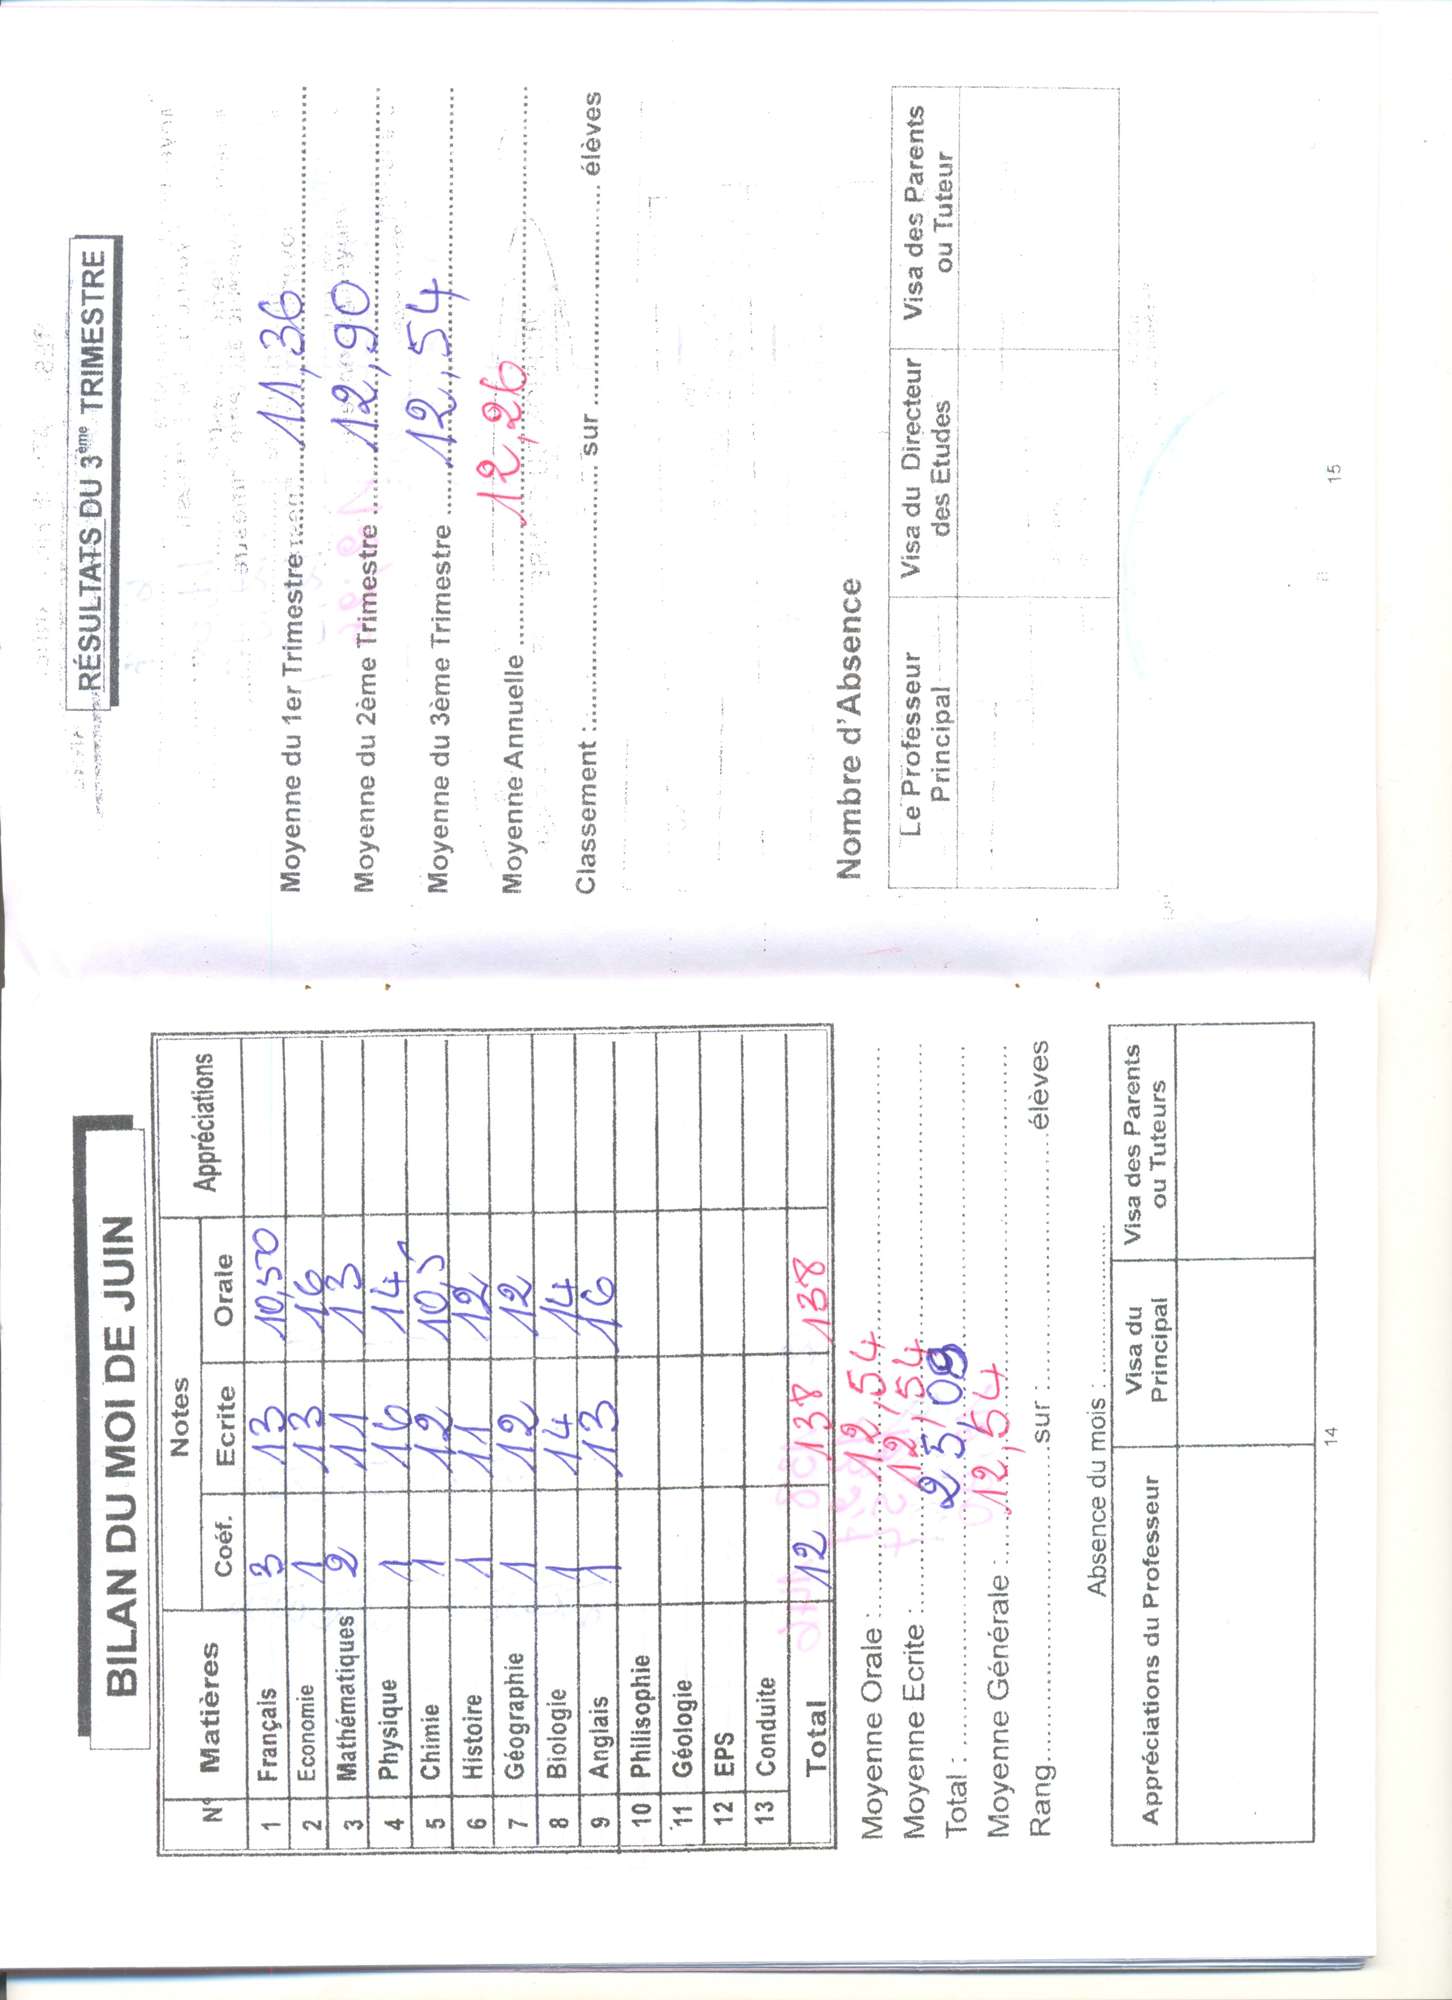 BILAN DU MOI DE JUIN
N° Matières Notes Appréciations
Coéf. Ecrite Orale
1 Français 3 13 10,50
2 Economie 1 13 16
3 Mathématiques 2 11 13
4 Physique 1 16 14
5 Chimie 1 12 10,5
6 Histoire 1 11 12
7 Géographie 1 12 12
8 Biologie 1 14 14
9 Anglais 1 13 16
10 Philisophie
11 Géologie
12 EPS
13 Conduite
Total 12 138 138
Moyenne Orale : 12,54
Moyenne Ecrite : 12,54
Total : 25,08
Moyenne Générale : 12,54
Rang sur : élèves
Absence du mois :
Appréciations du Professeur Visa du Principal Visa des Parents ou Tuteurs
14
RÉSULTATS DU 3ème TRIMESTRE
Moyenne du 1er Trimestre 11,36
Moyenne du 2ème Trimestre 12,90
Moyenne du 3ème Trimestre 12,54
Moyenne Annuelle 12,26
Classement : sur élèves
Nombre d'Absence
Le Professeur Principal Visa du Directeur des Etudes Visa des Parents ou Tuteur
15